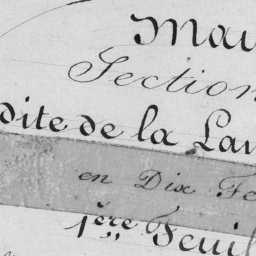 Mau
Section
dite de la Lau
en Dix Fe
1ère Feuil